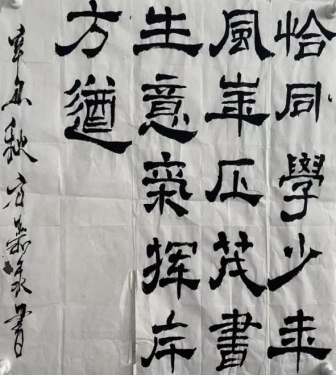 恰同學少年
風華正茂書
生意氣揮斥
方遒
辛丑秋書